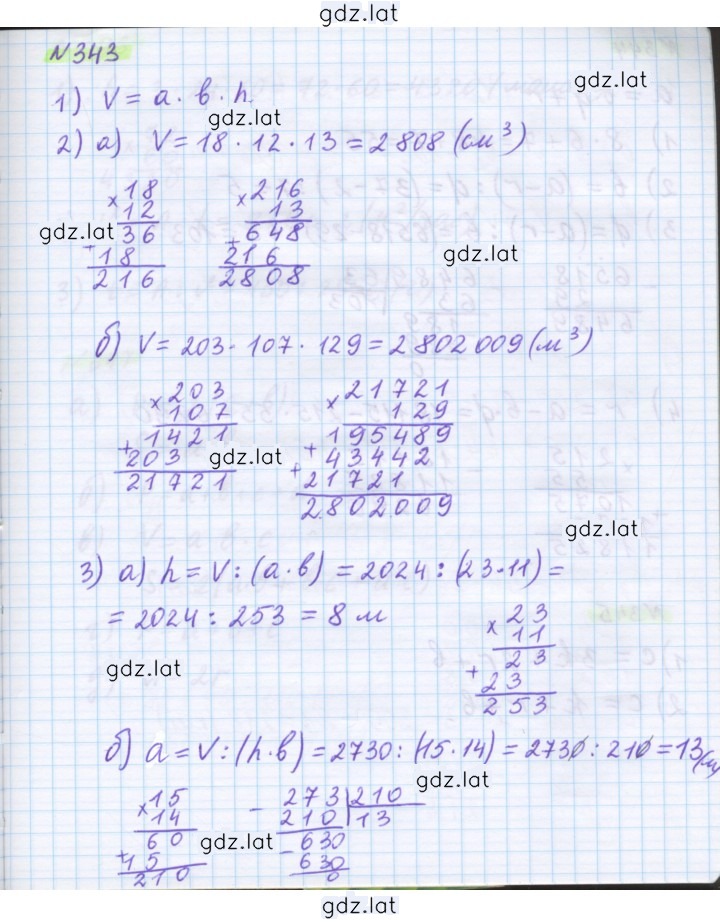 gdz.lat
N343
gdz.lat
1) V = a · b · h.
gdz.lat
2) а) V = 18 · 12 · 13 = 2 808 (см³)
× 18   × 216
12   13
gdz.lat 36   648
+ 18   + 216
216   2808
gdz.lat
б) V = 203 · 107 · 129 = 2 802 009 (м³)
× 203   × 21721
107   129
+ 1421   195489
203   + 43442
gdz.lat
21721   + 21721
2802009
gdz.lat
3) а) h = V : (a · b) = 2024 : (23 · 11) =
= 2024 : 253 = 8 м
× 23
11
23
+ 23
253
gdz.lat
б) a = V : (h · b) = 2730 : (15 · 14) = 2730 : 210 = 13 (м)
gdz.lat
× 15   – 273 | 210
14   210 | 13
60   – 630
gdz.lat
+ 15   630
210   0
gdz.lat